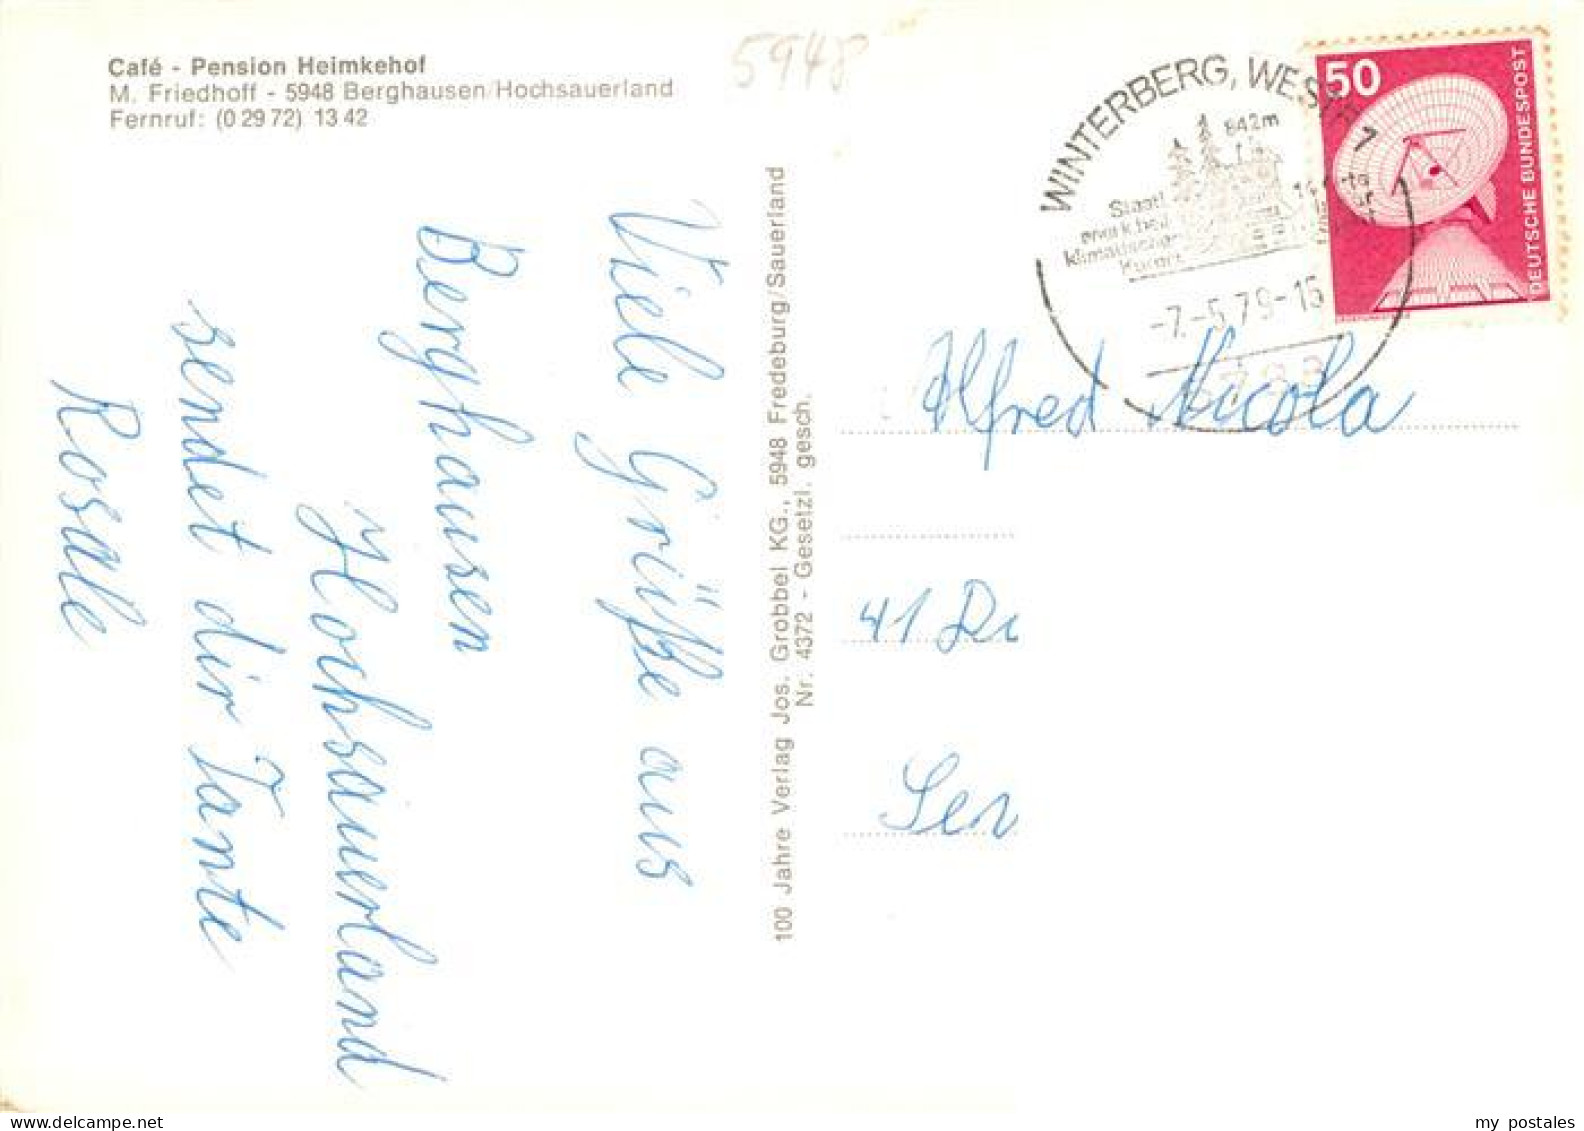 Café - Pension Heimkehof
M. Friedhoff - 5948 Berghausen/Hochsauerland
Fernruf: (0 29 72) 13 42
5948
Viele Grüße aus
Berghausen
Hochsauerland
sendet dir Tante
Rosalle
100 Jahre Verlag Jos. Grobbel KG., 5948 Fredeburg/Sauerland
Nr. 4372 - Gesetzl. gesch.
WINTERBERG, WESTF 1
842m
Staatl
klimatischer
-7.-5.79-15
5788
50
DEUTSCHE BUNDESPOST
Alfred Nicola
41 Du
Sen
my postales